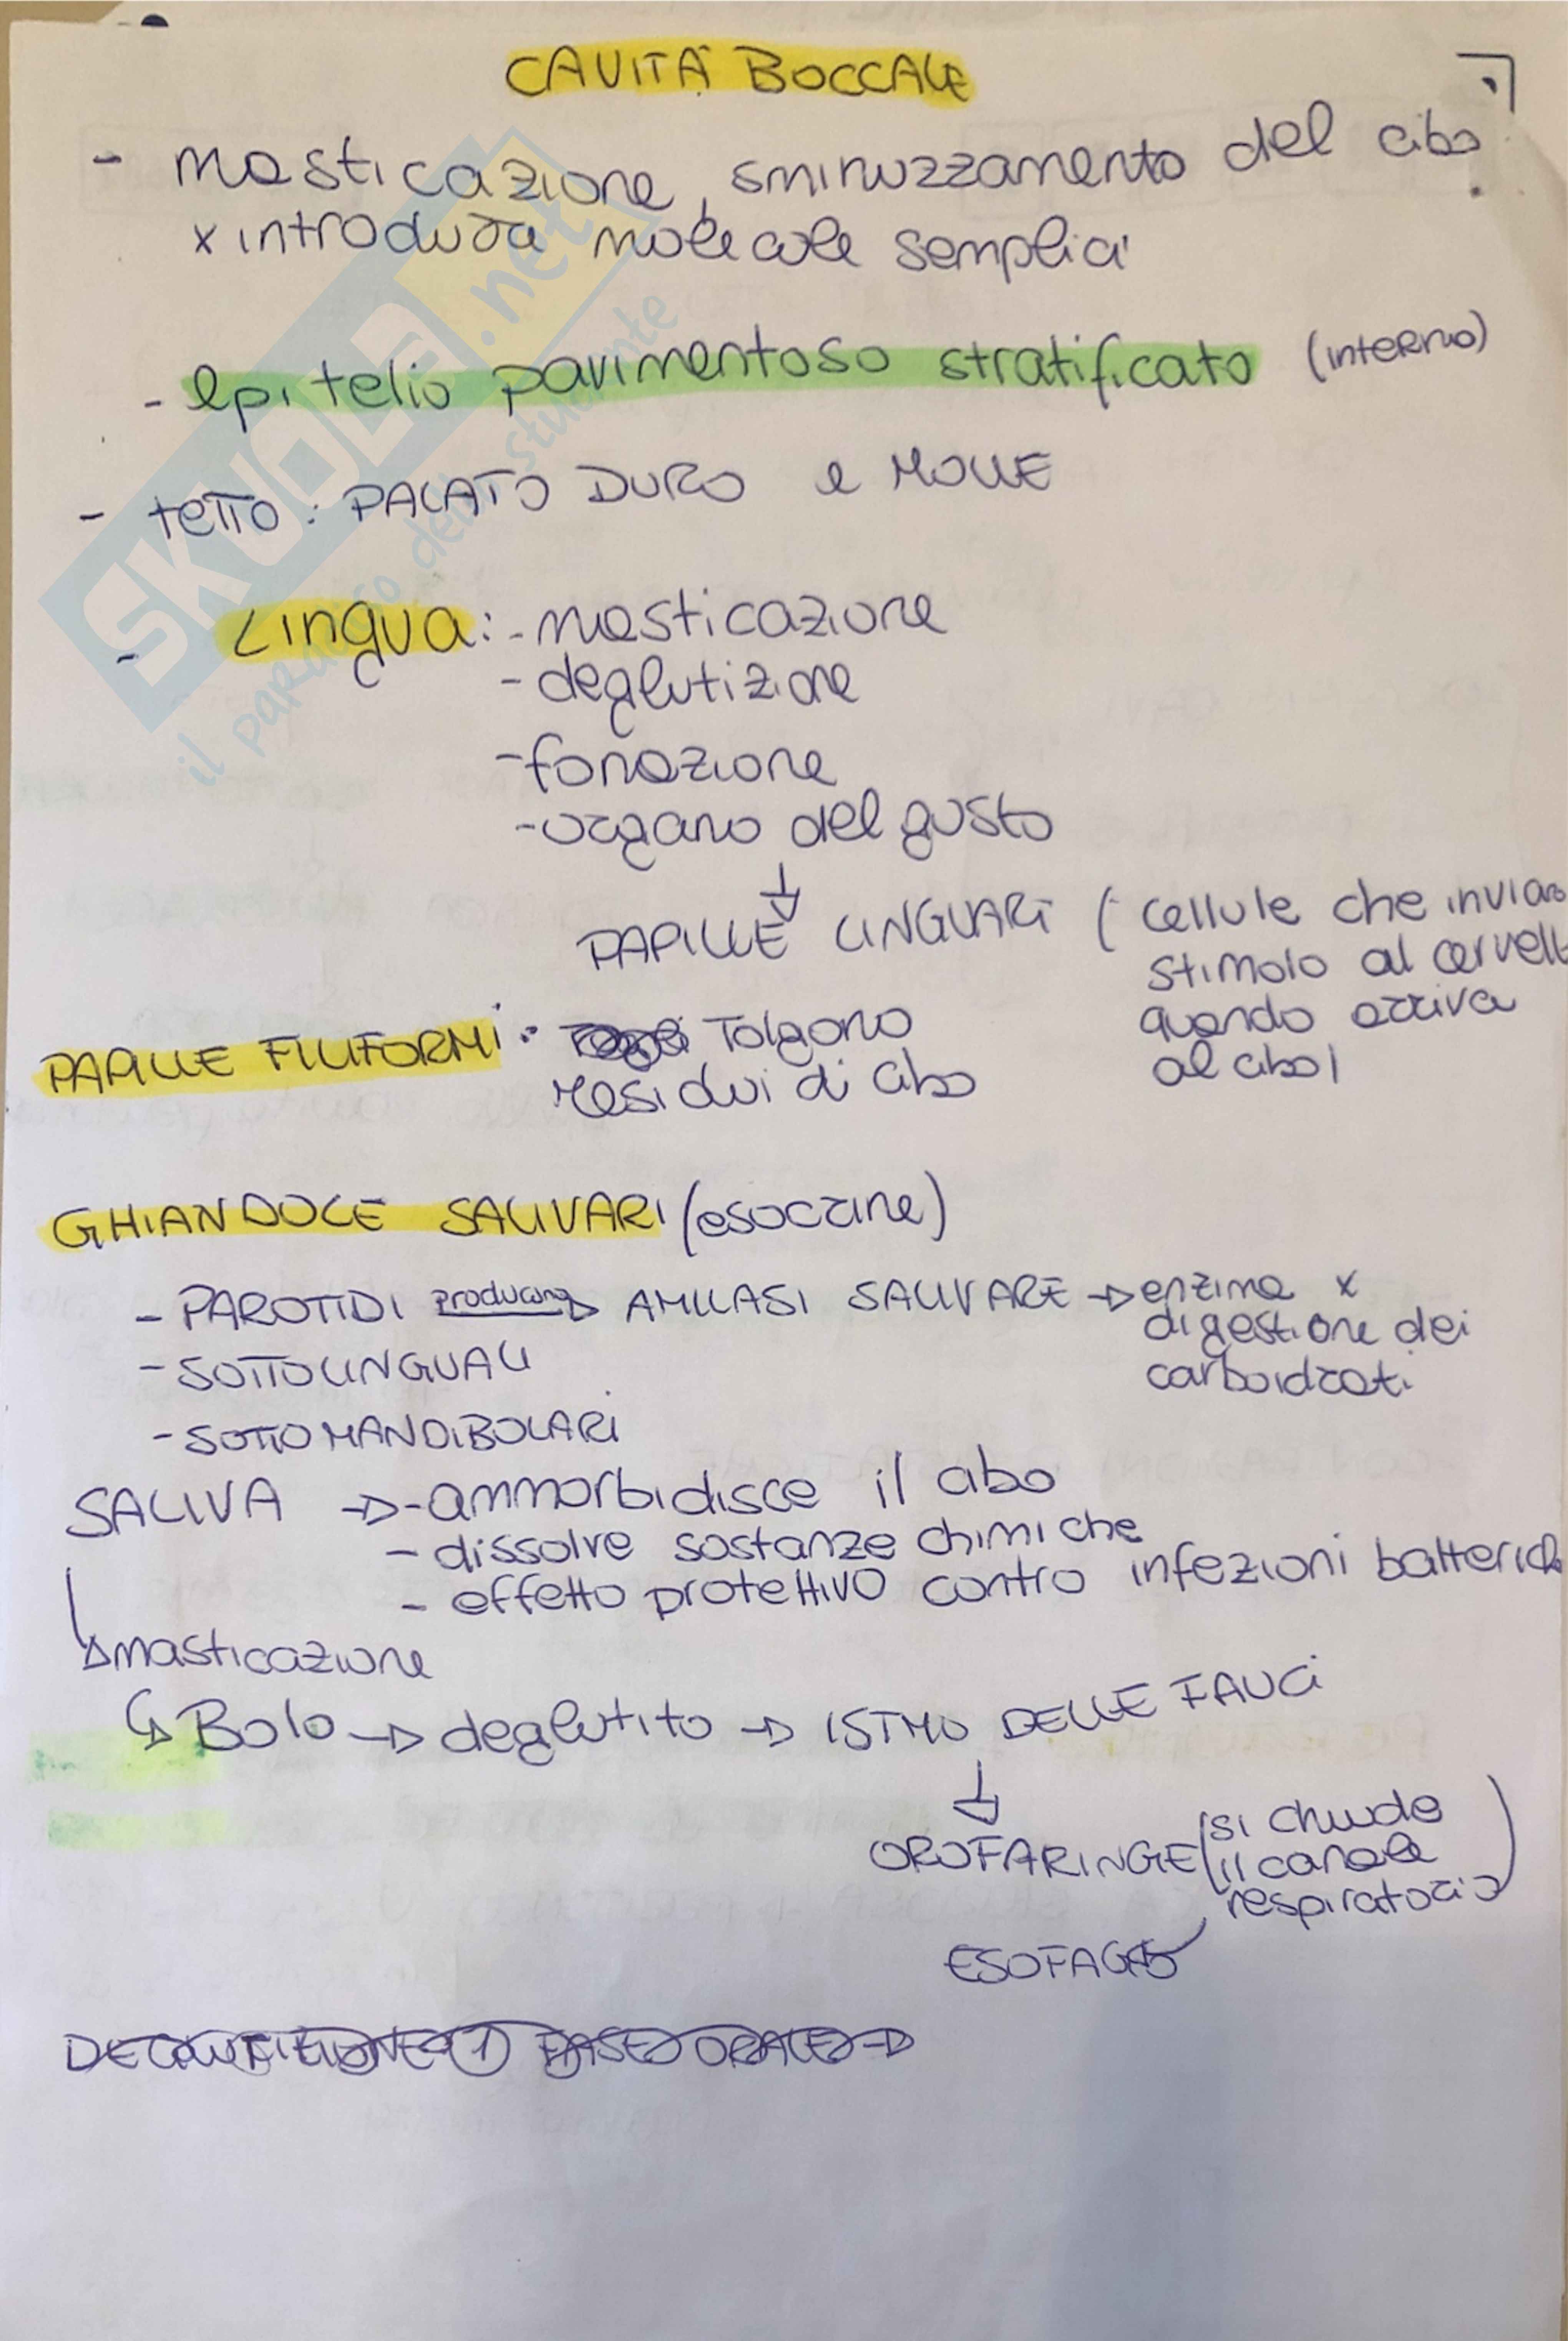 CAVITÀ BOCCALE
- masticazione, sminuzzamento del cibo
x introdurre molecole semplici
- epitelio pavimentoso stratificato (interno)
- tetto: PALATO DURO e MOLLE
- Lingua: - masticazione
- deglutizione
- fonazione
- organo del gusto
↓
PAPILLE LINGUARI (cellule che inviano
stimolo al cervello
quando arriva
al cibo)
PAPILLE FILIFORMI: Tolgono
residui di cibo
GHIANDOLE SALIVARI (esocrine)
- PAROTIDI producono → AMILASI SALIVARE → enzima x
digestione dei
carboidrati
- SOTTOLINGUALI
- SOTTOMANDIBOLARI
SALIVA → - ammorbidisce il cibo
- dissolve sostanze chimiche
- effetto protettivo contro infezioni batteriche
↳ masticazione
↳ Bolo → deglutito → ISTMO DELLE FAUCI
↓
OROFARINGE (si chiude
il canale
respiratorio)
ESOFAGO
DEGLUTIZIONE ① FASE ORALE →
SKUOLA.net
il paradiso dello studente